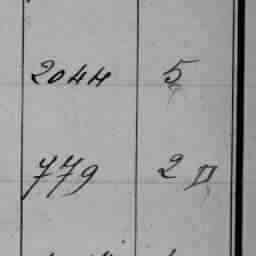 2044 5
779 2 II